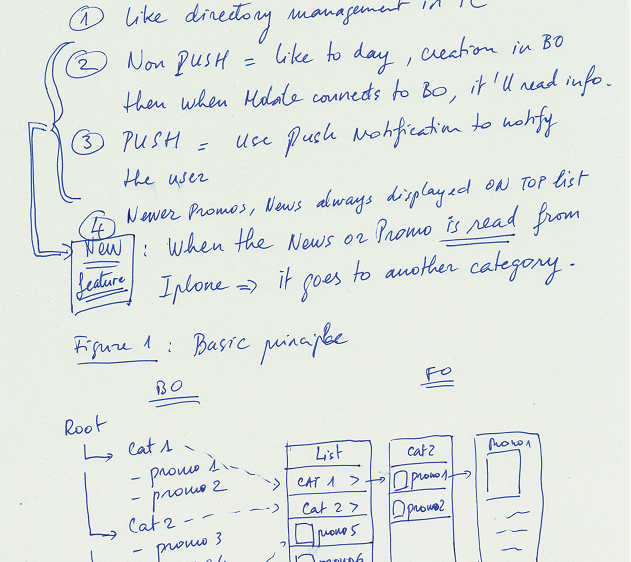 ① Like directory management in TC
② Non PUSH = like to day, creation in BO
then when Mobile connects to BO, it'll read info.
③ PUSH = use Push Notification to notify
the user
④ Newer Promos, News always displayed ON TOP list
New feature : When the News or Promo is read from
Iphone => it goes to another category.
Figure 1 : Basic principle
BO
FO
Root
Cat 1
- promo 1
- promo 2
Cat 2
- promo 3
List
CAT 1 >
Cat 2 >
promo 5
promo 6
Cat 2
promo 1
promo 2
promo 1